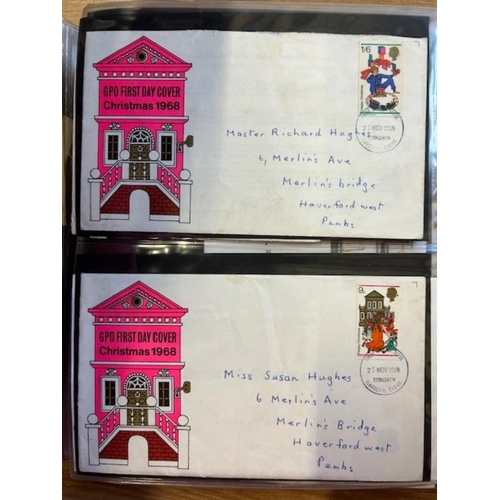 GPO FIRST DAY COVER
Christmas 1968
1/6
Master Richard Hughes
6, Merlin's Ave
Merlin's bridge
Haverfordwest
Pembs
NOV 1968
BETHLEHEM
GPO FIRST DAY COVER
Christmas 1968
9D
Miss Susan Hughes
6 Merlin's Ave
Merlin's Bridge
Haverfordwest
Pembs
NOV 1968
BETHLEHEM